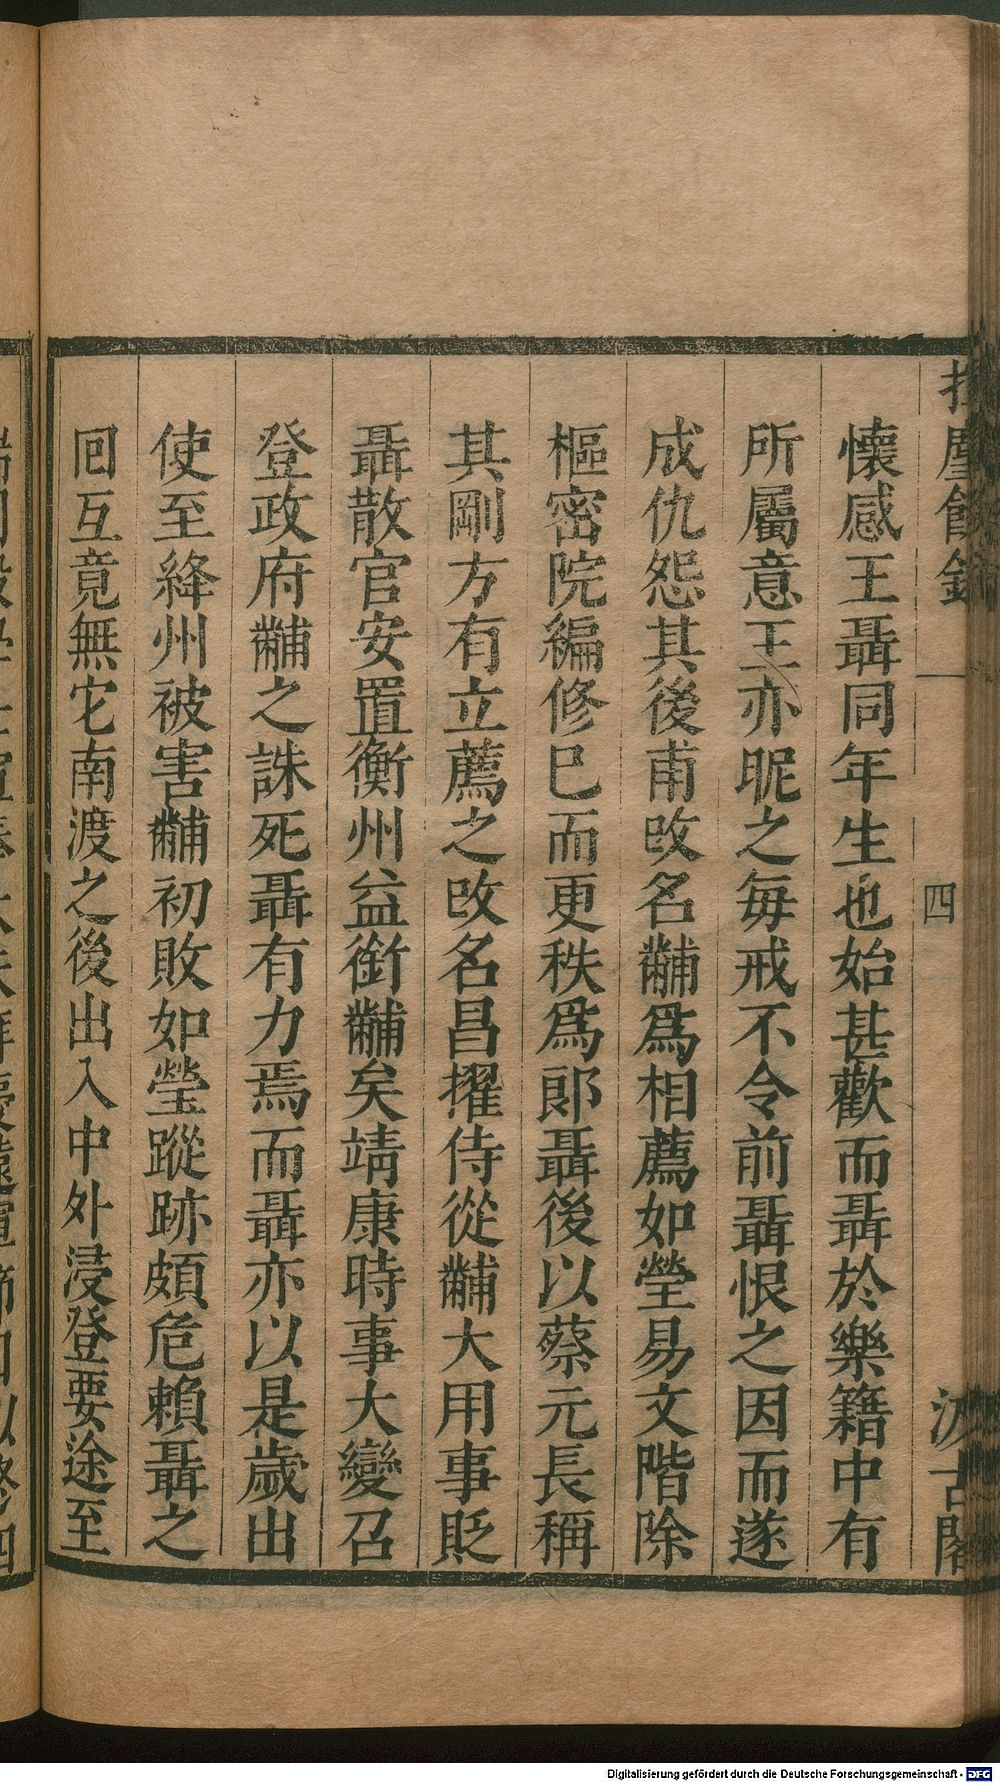 塵餘錄 一 四 汲古閣
懷感王聶同年生也始甚歡而聶於樂籍中有
所屬意王亦昵之每戒不令前聶恨之因而遂
成仇怨其後甫改名黼爲相薦如瑩易文階除
樞密院編修已而更秩爲郎聶後以蔡元長稱
其剛方有立薦之改名昌擢侍從黼大用事貶
聶散官安置衡州益銜黼矣靖康時事大變召
登政府黼之誅死聶有力焉而聶亦以是歲出
使至絳州被害黼初敗如瑩蹤跡頗危賴聶之
回互竟無它南渡之後出入中外浸登要途至
Digitalisierung gefördert durch die Deutsche Forschungsgemeinschaft - DFG